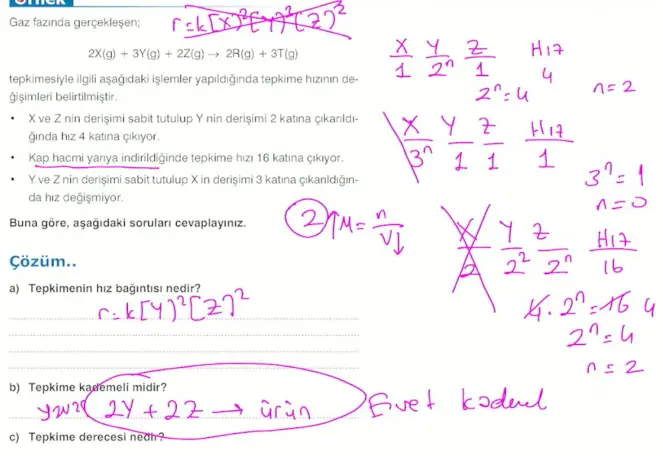 Örnek
Gaz fazında gerçekleşen;
r=k[X]²[Y]³[Z]²
2X(g) + 3Y(g) + 2Z(g) → 2R(g) + 3T(g)
tepkimesiyle ilgili aşağıdaki işlemler yapıldığında tepkime hızının de-
ğişimleri belirtilmiştir.
• X ve Z nin derişimi sabit tutulup Y nin derişimi 2 katına çıkarıldı-
ğında hız 4 katına çıkıyor.
• Kap hacmi yarıya indirildiğinde tepkime hızı 16 katına çıkıyor.
• Y ve Z nin derişimi sabit tutulup X in derişimi 3 katına çıkarıldığın-
da hız değişmiyor.
Buna göre, aşağıdaki soruları cevaplayınız.
2 ↑M = n
V↓
Çözüm..
a) Tepkimenin hız bağıntısı nedir?
r=k[Y]²[Z]²
b) Tepkime kademeli midir?
yavaş 2Y + 2Z → ürün Evet kademeli
c) Tepkime derecesi nedir?
X Y Z HIZ
1 2ⁿ 1 4
2ⁿ=4 n=2
X Y Z HIZ
3ⁿ 1 1 1
3ⁿ=1
n=0
X Y Z HIZ
2 2² 2ⁿ 16
4. 2ⁿ=16 4
2ⁿ=4
n=2